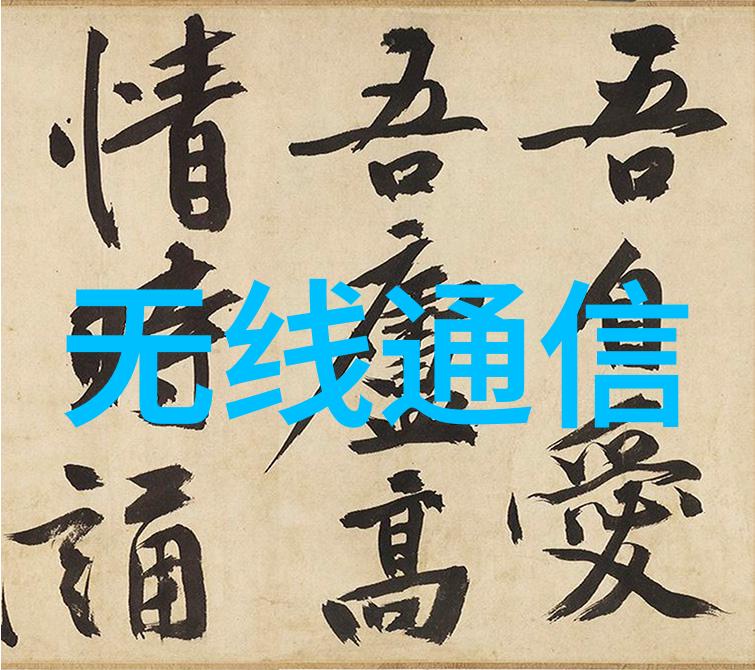 吾自愛
吾廬高
情時誦
无线通信